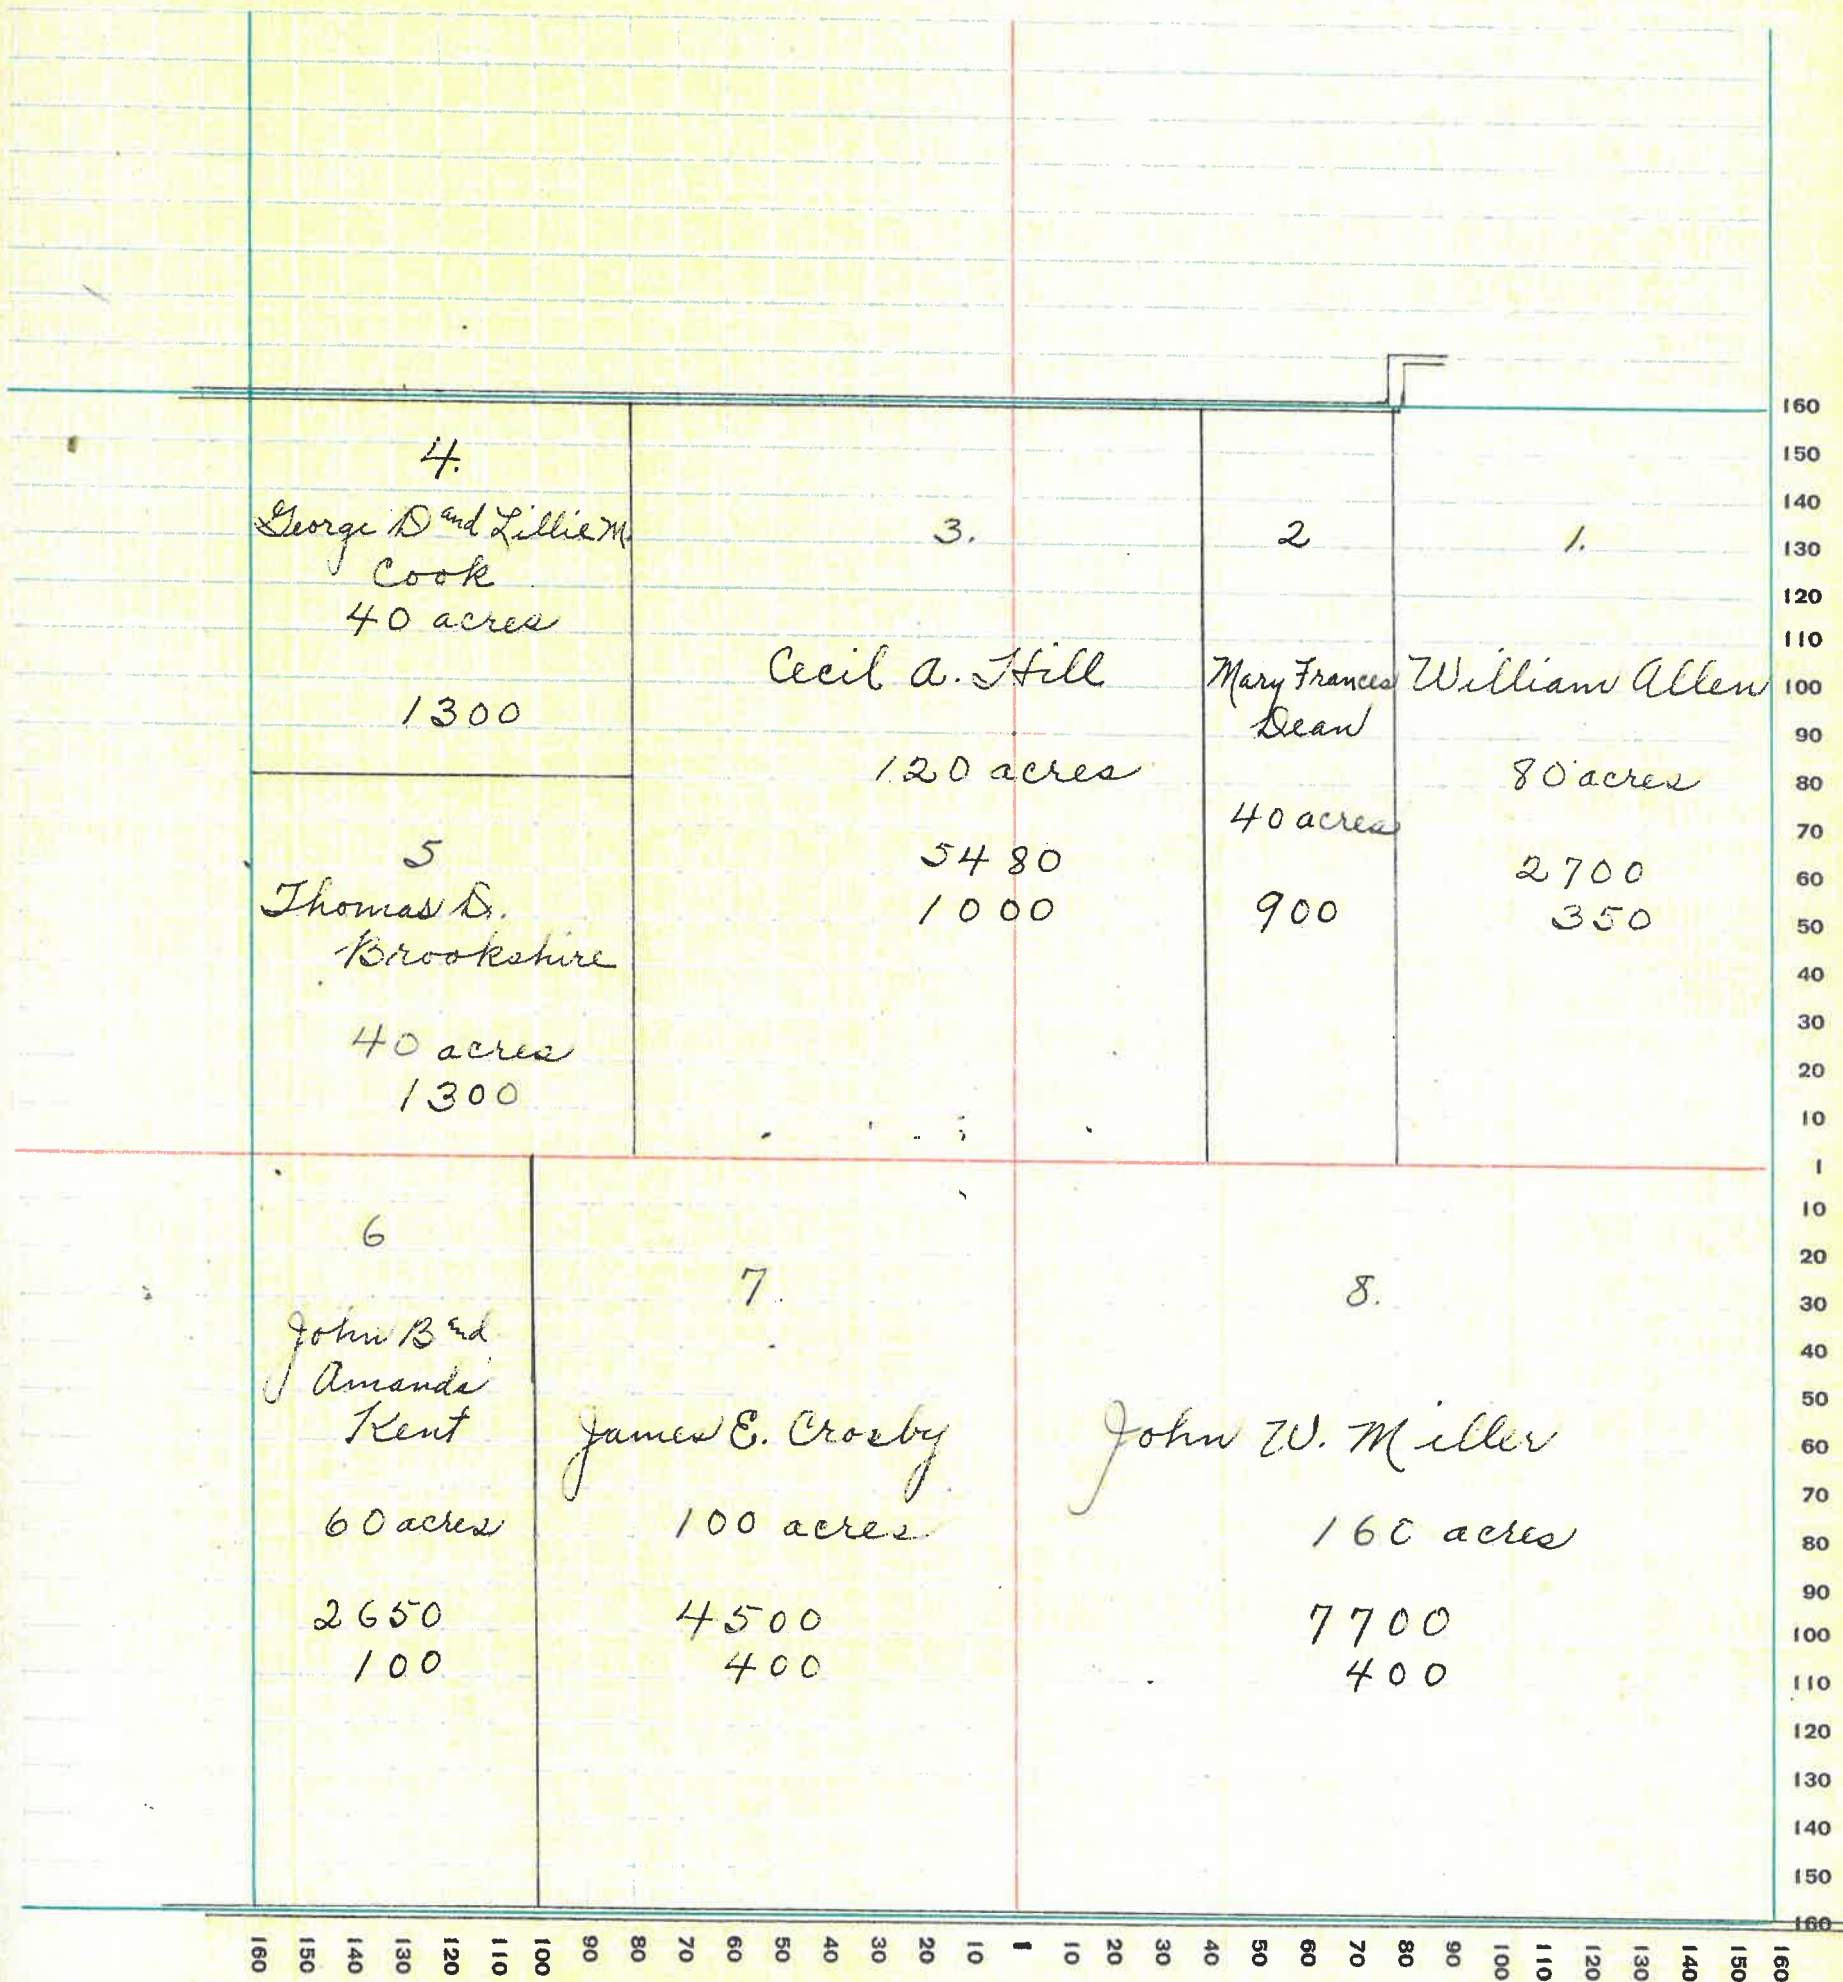 4.
George D and Lillie M.
Cook
40 acres
1300
3.
Cecil A. Hill
120 acres
5480
1000
2
Mary Frances
Dean
40 acres
900
1.
William Allen
80 acres
2700
350
5
Thomas D.
Brookshire
40 acres
1300
6
John B and
Amanda
Kent
60 acres
2650
100
7.
James E. Crosby
100 acres
4500
400
8.
John W. Miller
160 acres
7700
400
160
150
140
130
120
110
100
90
80
70
60
50
40
30
20
10
1
10
20
30
40
50
60
70
80
90
100
110
120
130
140
150
160
160 150 140 130 120 110 100 90 80 70 60 50 40 30 20 10 1 10 20 30 40 50 60 70 80 90 100 110 120 130 140 150 160